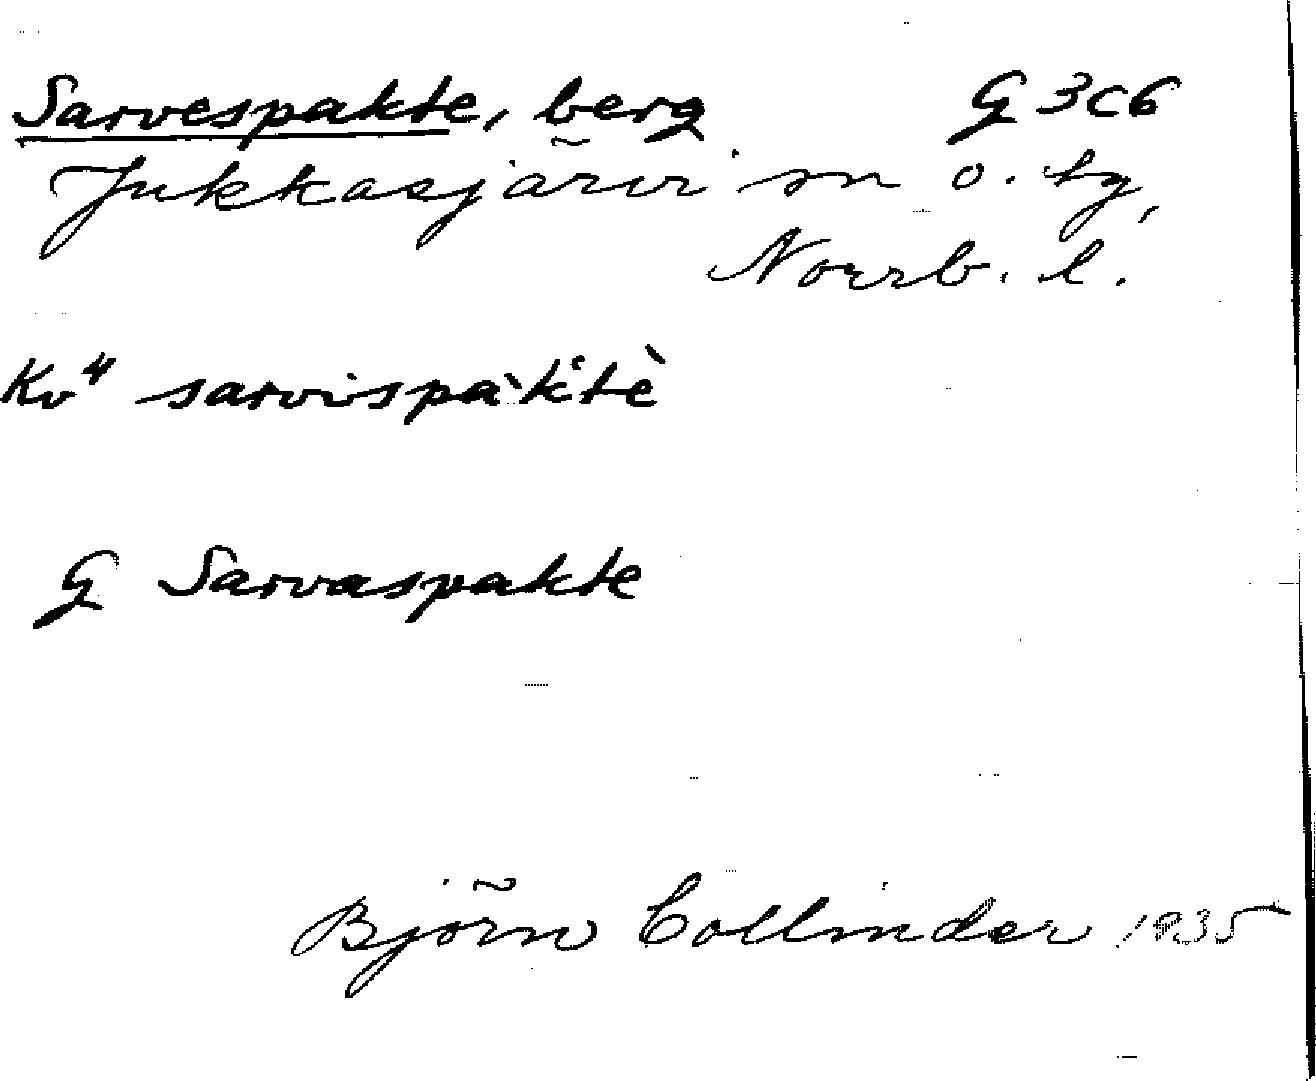 Sarvespakte, berg G 3c6
Jukkasjärvi sn o. tg,
Norrb. l.
Kv⁴ sarvispàk̀'tè
G Sarvaspakte
Björn Collinder 1935